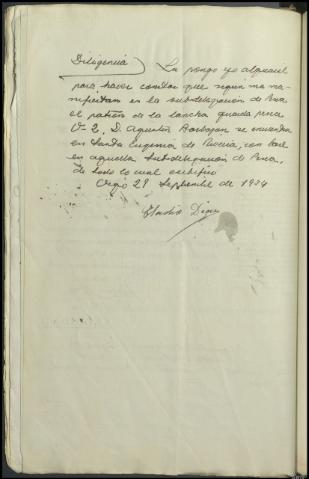 Diligencia) La pongo yo alguacil
para hacer constar que segun me ma-
nifiestan en la subdelegación de Pesca
el patrón de la lancha guarda pesca
V-2, D. Agustin se encuentra
en Santa Eugenia de Riveira, con
en aquella Subdelegación de Pesca,
de todo lo cual certifico
Vigo 29 Septiembre de 1934
Eladio Diaz